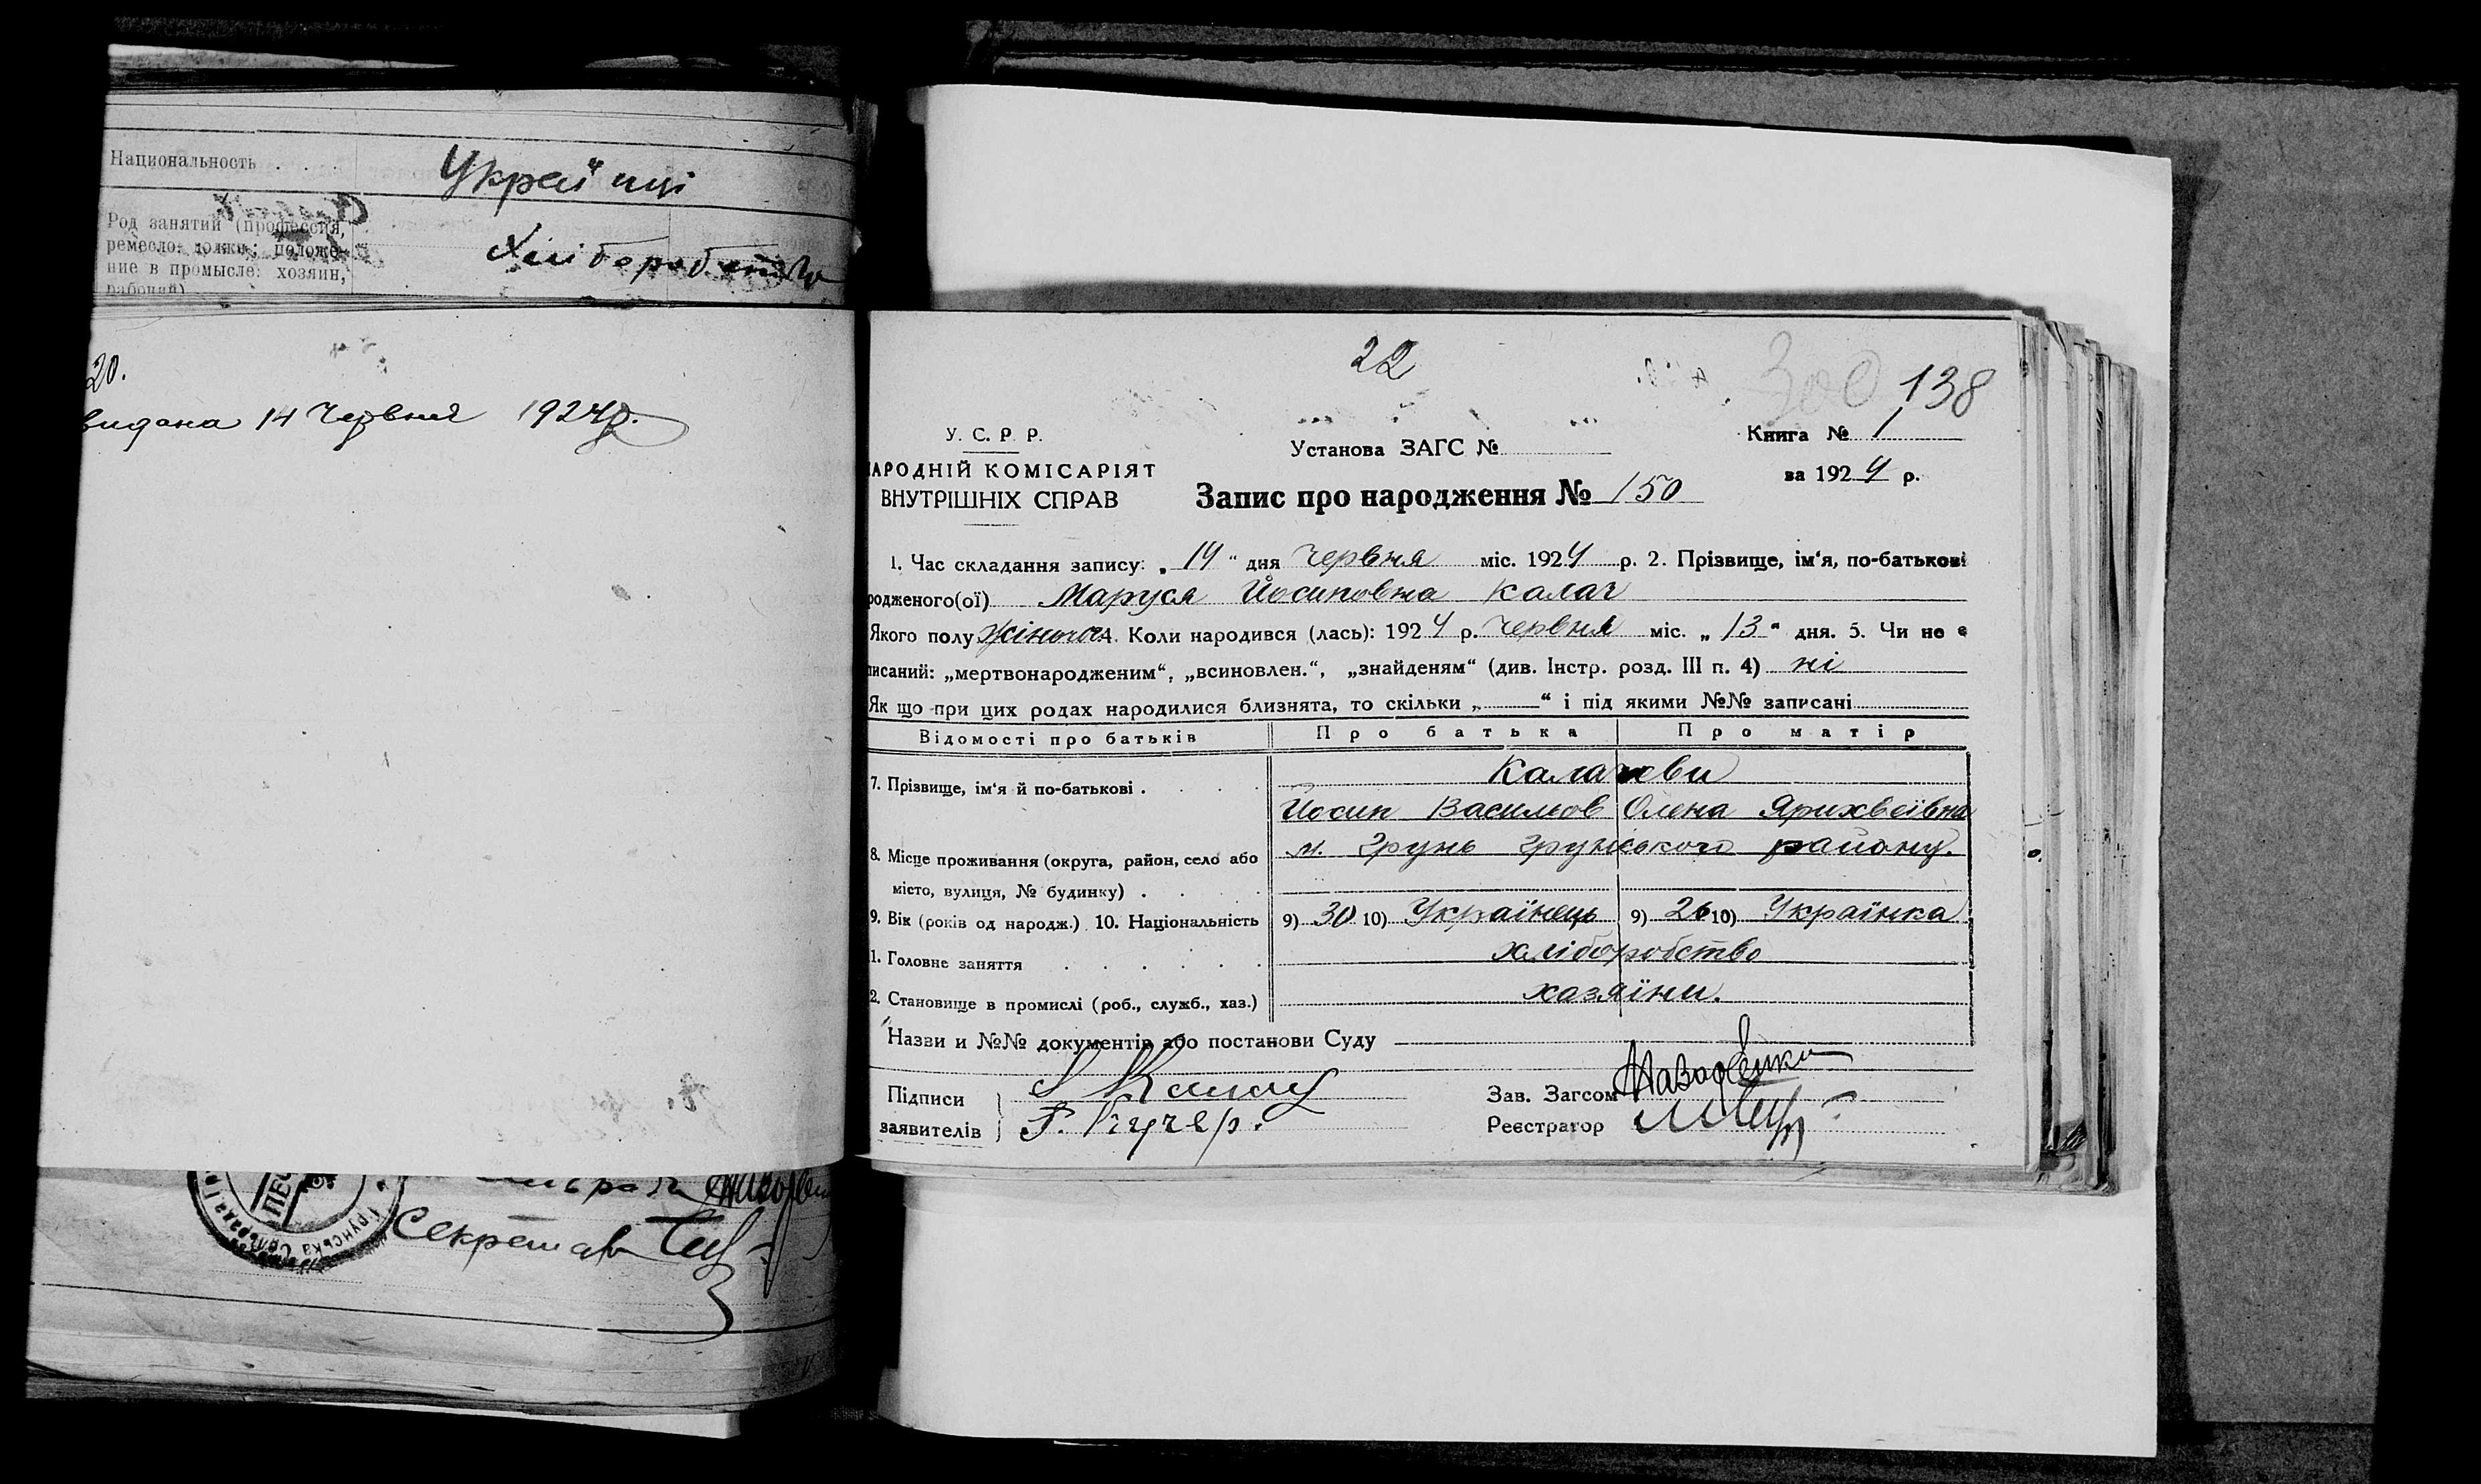 Национальность . . . . Українці
Род занятий (профессия,
ремесло, должн.; положе-
ние в промысле: хозяин,
рабочий)
Хліборобство
20.
видана 14 Червня 1924 р.
Грунська Сільрада
Секретар
22
300 138
У. С. Р. Р. Установа ЗАГС № Книга № 1
НАРОДНІЙ КОМІСАРІЯТ за 1924 р.
ВНУТРІШНІХ СПРАВ Запис про народження № 150
1. Час складання запису: „14“ дня червня міс. 1924 р. 2. Прізвище, ім'я, по-батькові
родженого(ої) Маруся Йосиповна Калач
Якого полу жіночого 4. Коли народився (лась): 1924 р. червня міс. „13“ дня. 5. Чи не є
писаний: „мертвонародженим“, „всиновлен.“, „знайденям“ (див. Інстр. розд. III п. 4) ні
Як що при цих родах народилися близнята, то скільки „ “ і під якими №№ записані
Відомості про батьків Про батька Про матір
7. Прізвище, ім'я й по-батькові . . . . Калачеви
Йосип Васильов Олена Ярихвеївна
8. Місце проживання (округа, район, село або м. Грунь Грунського району.
місто, вулиця, № будинку) . . . .
9. Вік (років од народж.) 10. Національність 9) 30 10) Українець 9) 26 10) Українка
1. Головне заняття . . . . . . хліборобство
2. Становище в промислі (роб., служб., хаз.) хазяїни.
Назви и №№ документів або постанови Суду
Підписи Зав. Загсом
заявителів Кучер. Реєстратор